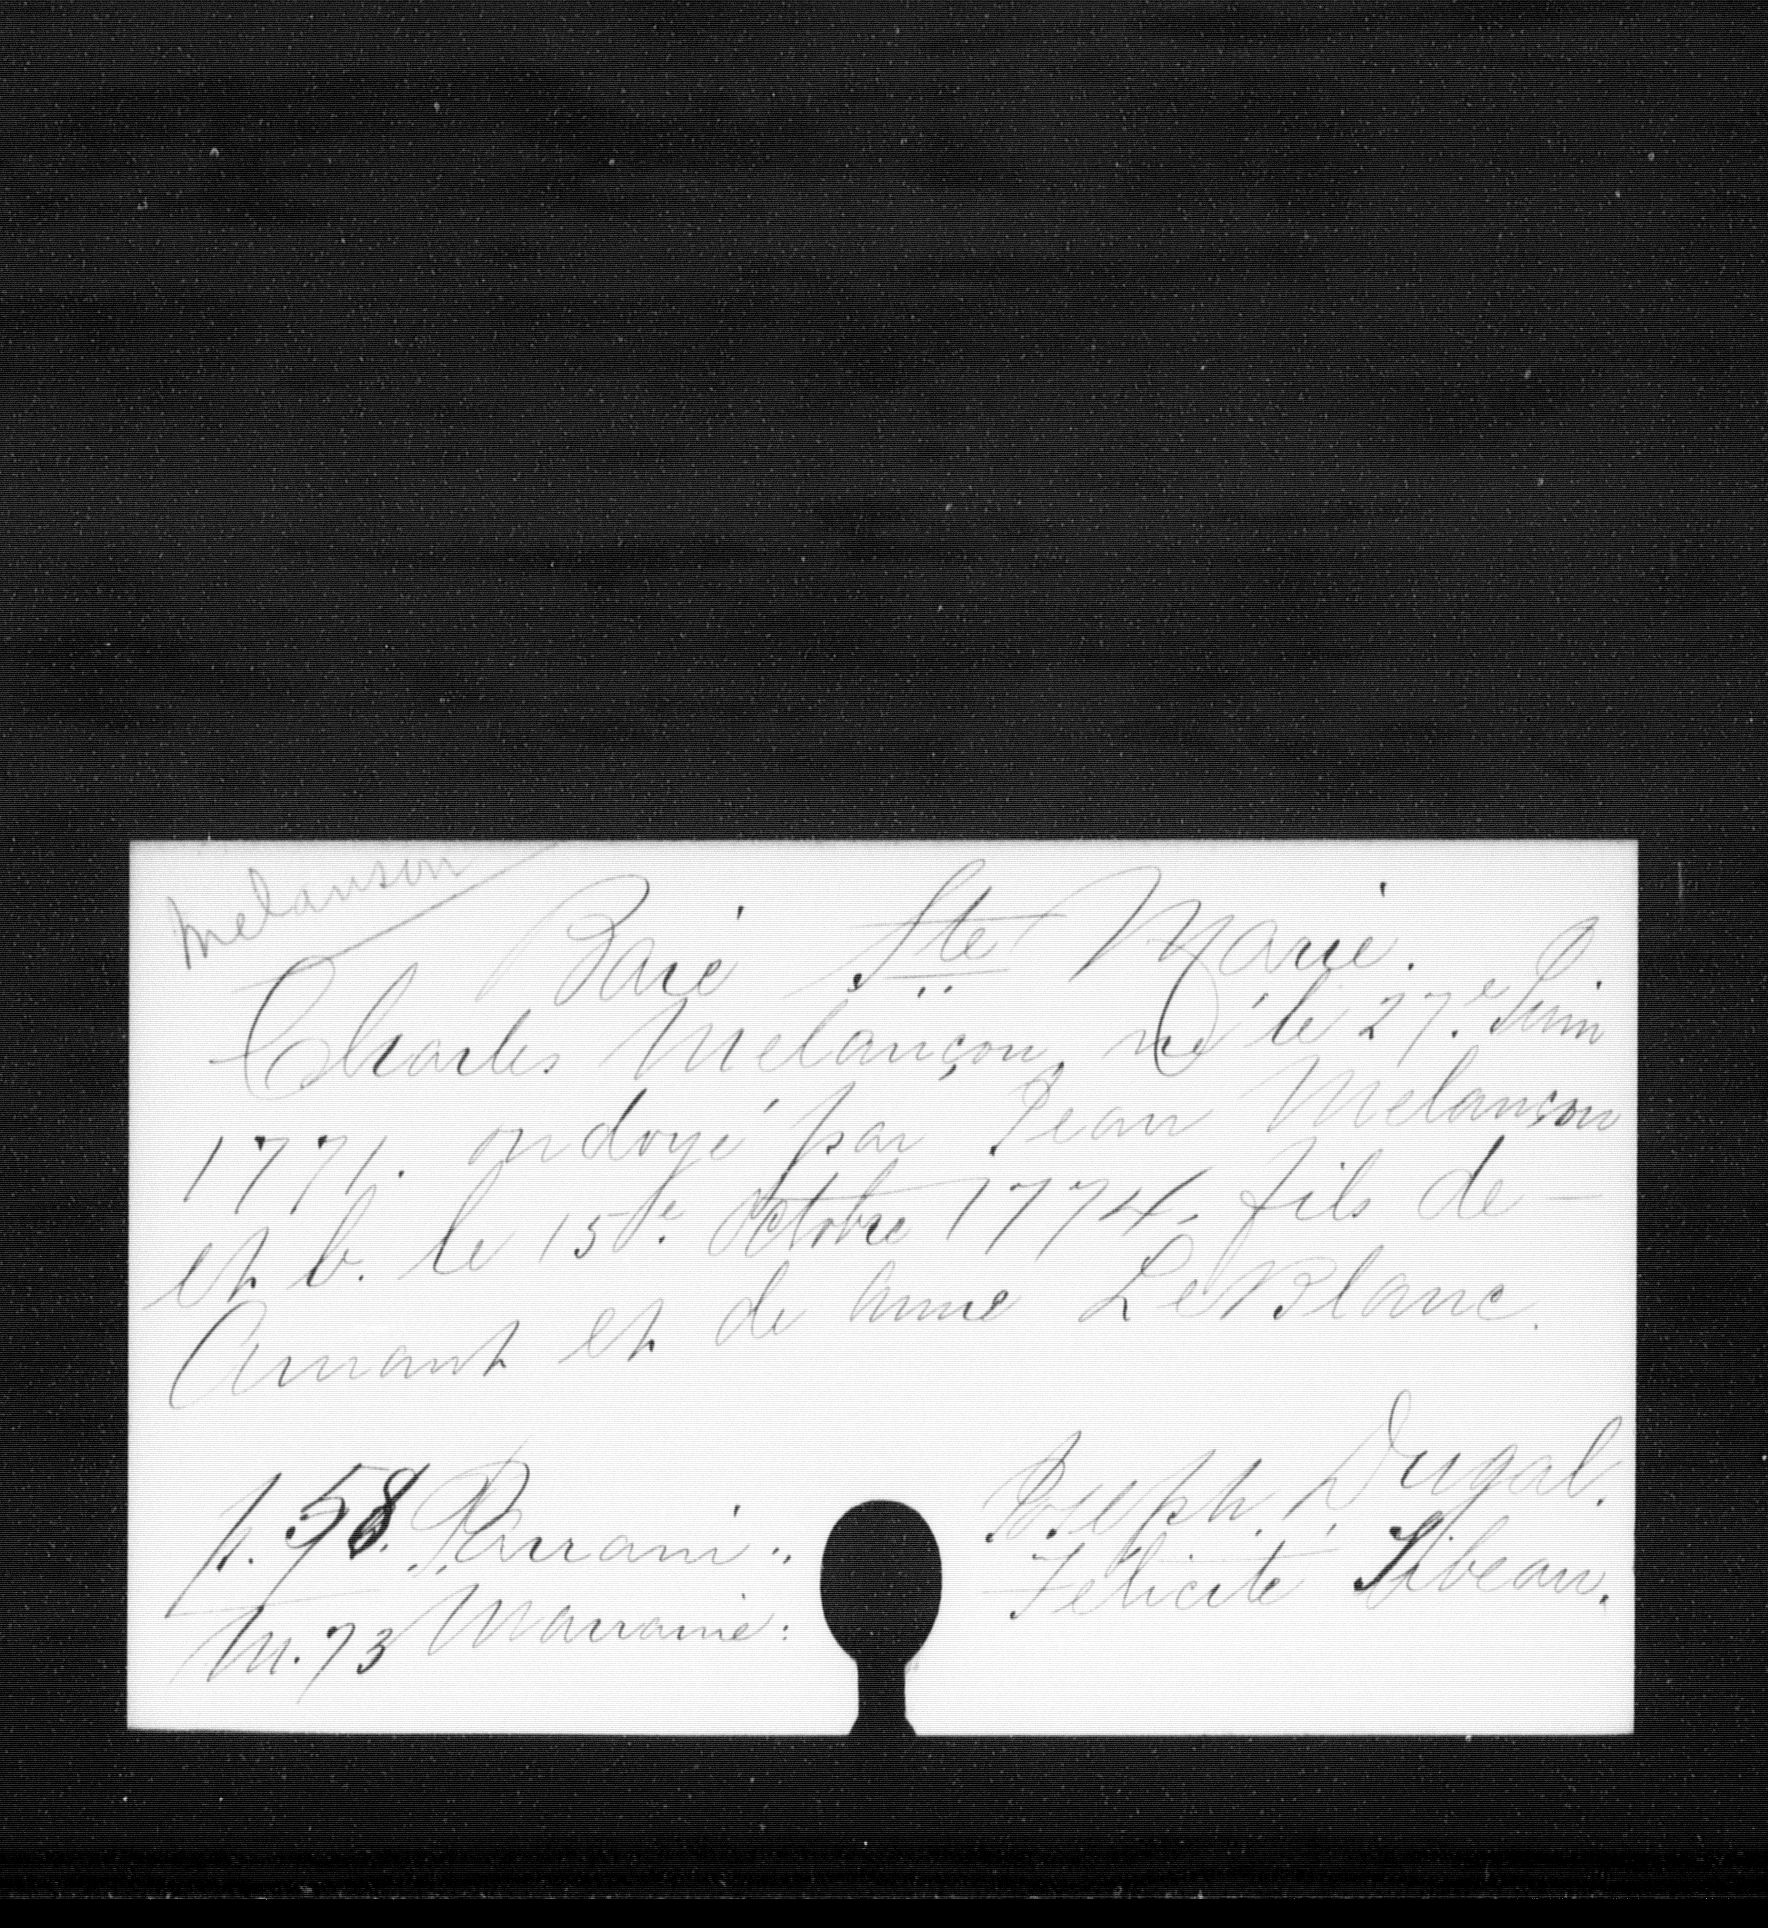 Melanson
Baie Ste Marie.
Charles Melançon, né le 27.e Juin
1771. ondoyé par Jean Melanson
et b. le 15.e Octobre 1774, fils de —
Amant et de Anne LeBlanc.
p. 58. Parrain: Joseph Dugal.
M. 73 Marraine: Felicité Tibeau.